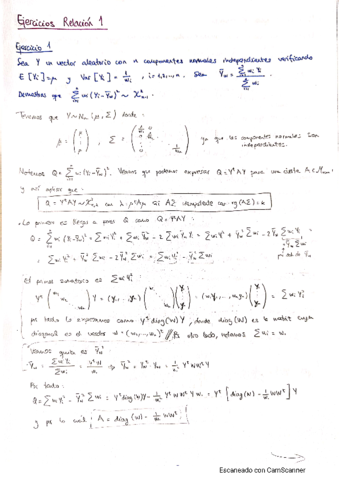 Ejercicios Relación 1
Ejercicio 1
Sea Y un vector aleatorio con n componentes normales independientes verificando
E[Yi]=μ y Var[Yi]=1/wi, i=1,...,n. Sea Ȳw = Σ wi Yi / Σ wi
Demostrar que Σ wi (Yi-Ȳw)² ~ χ²n-1.
Tenemos que Y~Nn(μ,Σ) donde
μ = (μ ⋮ μ), Σ = ya que las componentes normales son
independientes.
Notemos Q = Σ wi (Yi-Ȳw)². Veamos que podemos expresar Q=YᵗAY para una cierta A
y así aplicar que:
Q=YᵗAY ~ χ² λ=μᵗAμ si AΣ idempotente con rg(AΣ)=k
Lo primero es llegar a poner Q como Q=YᵗAY
Q = Σ wi (Yi-Ȳw)² = Σ wi Yi² + Σ wi Ȳw² - 2 Σ wi Yi Ȳw = Σ wi Yi² + Ȳw² Σ wi - 2 Ȳw Σ wi Yi =
= Σ wi Yi² + Ȳw² Σ wi - 2 Ȳw² Σ wi = Σ wi Yi² - Ȳw² Σ wi
El primer sumatorio es Σ wi Yi²
Yᵗ (w1 w2 ⋱ wn) Y = (y1, ..., yn) = (w1y1, ..., wnyn) = Σ wi Yi²
por tanto lo expresamos como Yᵗ diag(w) Y, donde diag(w) es la matriz cuya
diagonal es el vector w=(w1,...,wn)ᵗ. Por otro lado, notamos Σ wi = w.
Veamos quién es Ȳw²
Ȳw = Σ wi Yi / Σ wi = YᵗW / w. ⇒ Ȳw² = Ȳwᵗ Ȳw = 1/w.² YᵗWWᵗY
Por tanto:
Q = Σ wi Yi² - Ȳw² Σ wi = Yᵗ diag(w) Y - 1/w.² YᵗWWᵗY w. = Yᵗ [diag(w) - 1/w. WWᵗ] Y
y por lo cual A = diag(w) - 1/w. WWᵗ
Escaneado con CamScanner